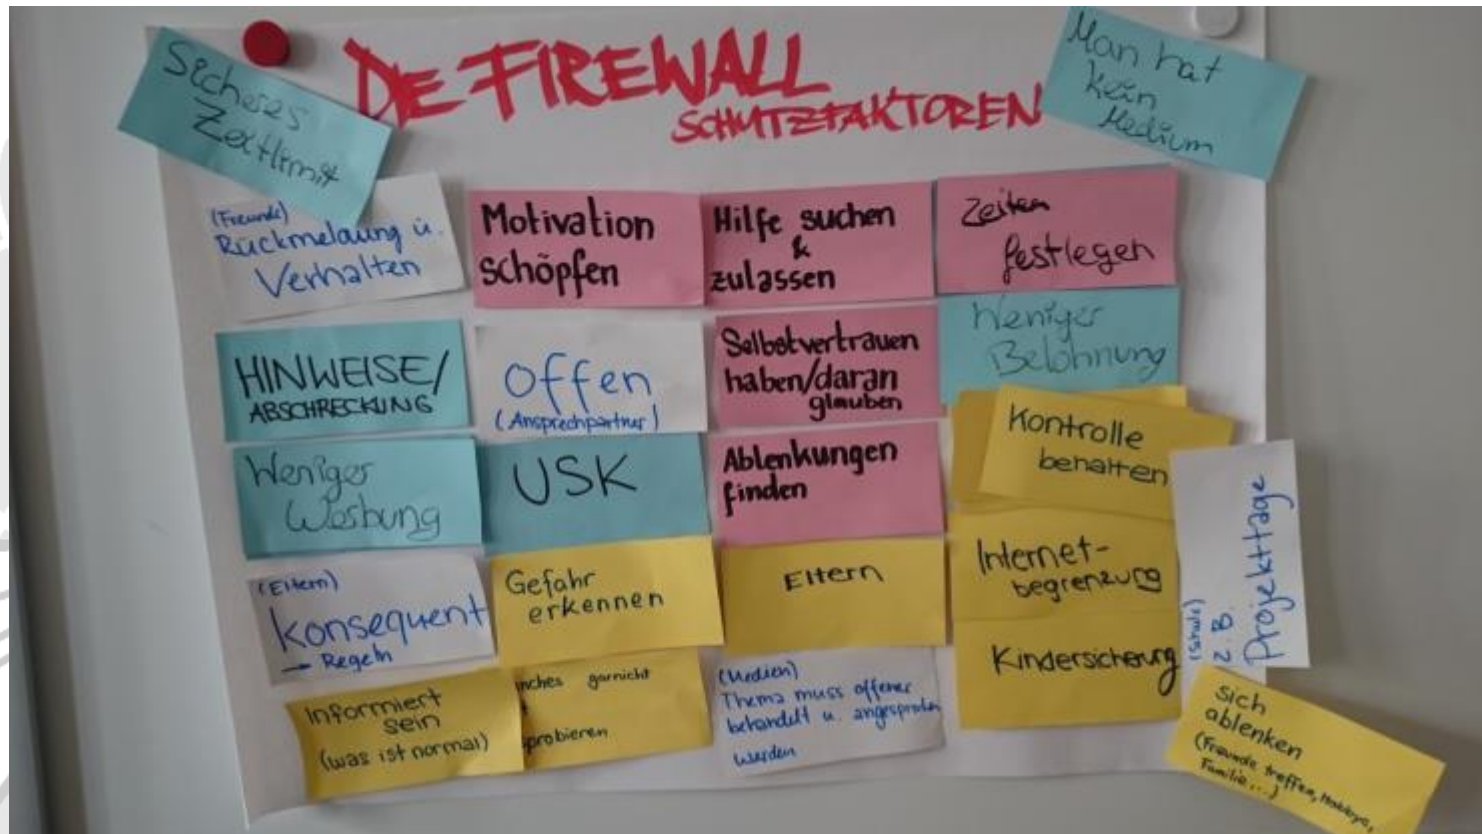 DIE FIREWALL
SCHUTZFAKTOREN
Sicheres
Zeitlimit
Man hat
kein
Medium
(Freunde)
Rückmeldung ü.
Verhalten
Motivation
schöpfen
Hilfe suchen
&
zulassen
Zeiten
festlegen
HINWEISE/
ABSCHRECKUNG
Offen
(Ansprechpartner)
Selbstvertrauen
haben/daran
glauben
Weniger
Belohnung
Weniger
Werbung
USK
Ablenkungen
finden
Kontrolle
behalten
(Eltern)
Konsequent
→ Regeln
Gefahr
erkennen
Eltern
Internet-
begrenzung
Kindersicherung
(Schule)
z.B.
Projekttage
Informiert
sein
(was ist normal)
nches garnicht
probieren
(Medien)
Thema muss offener
behandelt u. angesprochen
werden
Sich
ablenken
(Freunde treffen, Hobbys,
Familie,...)